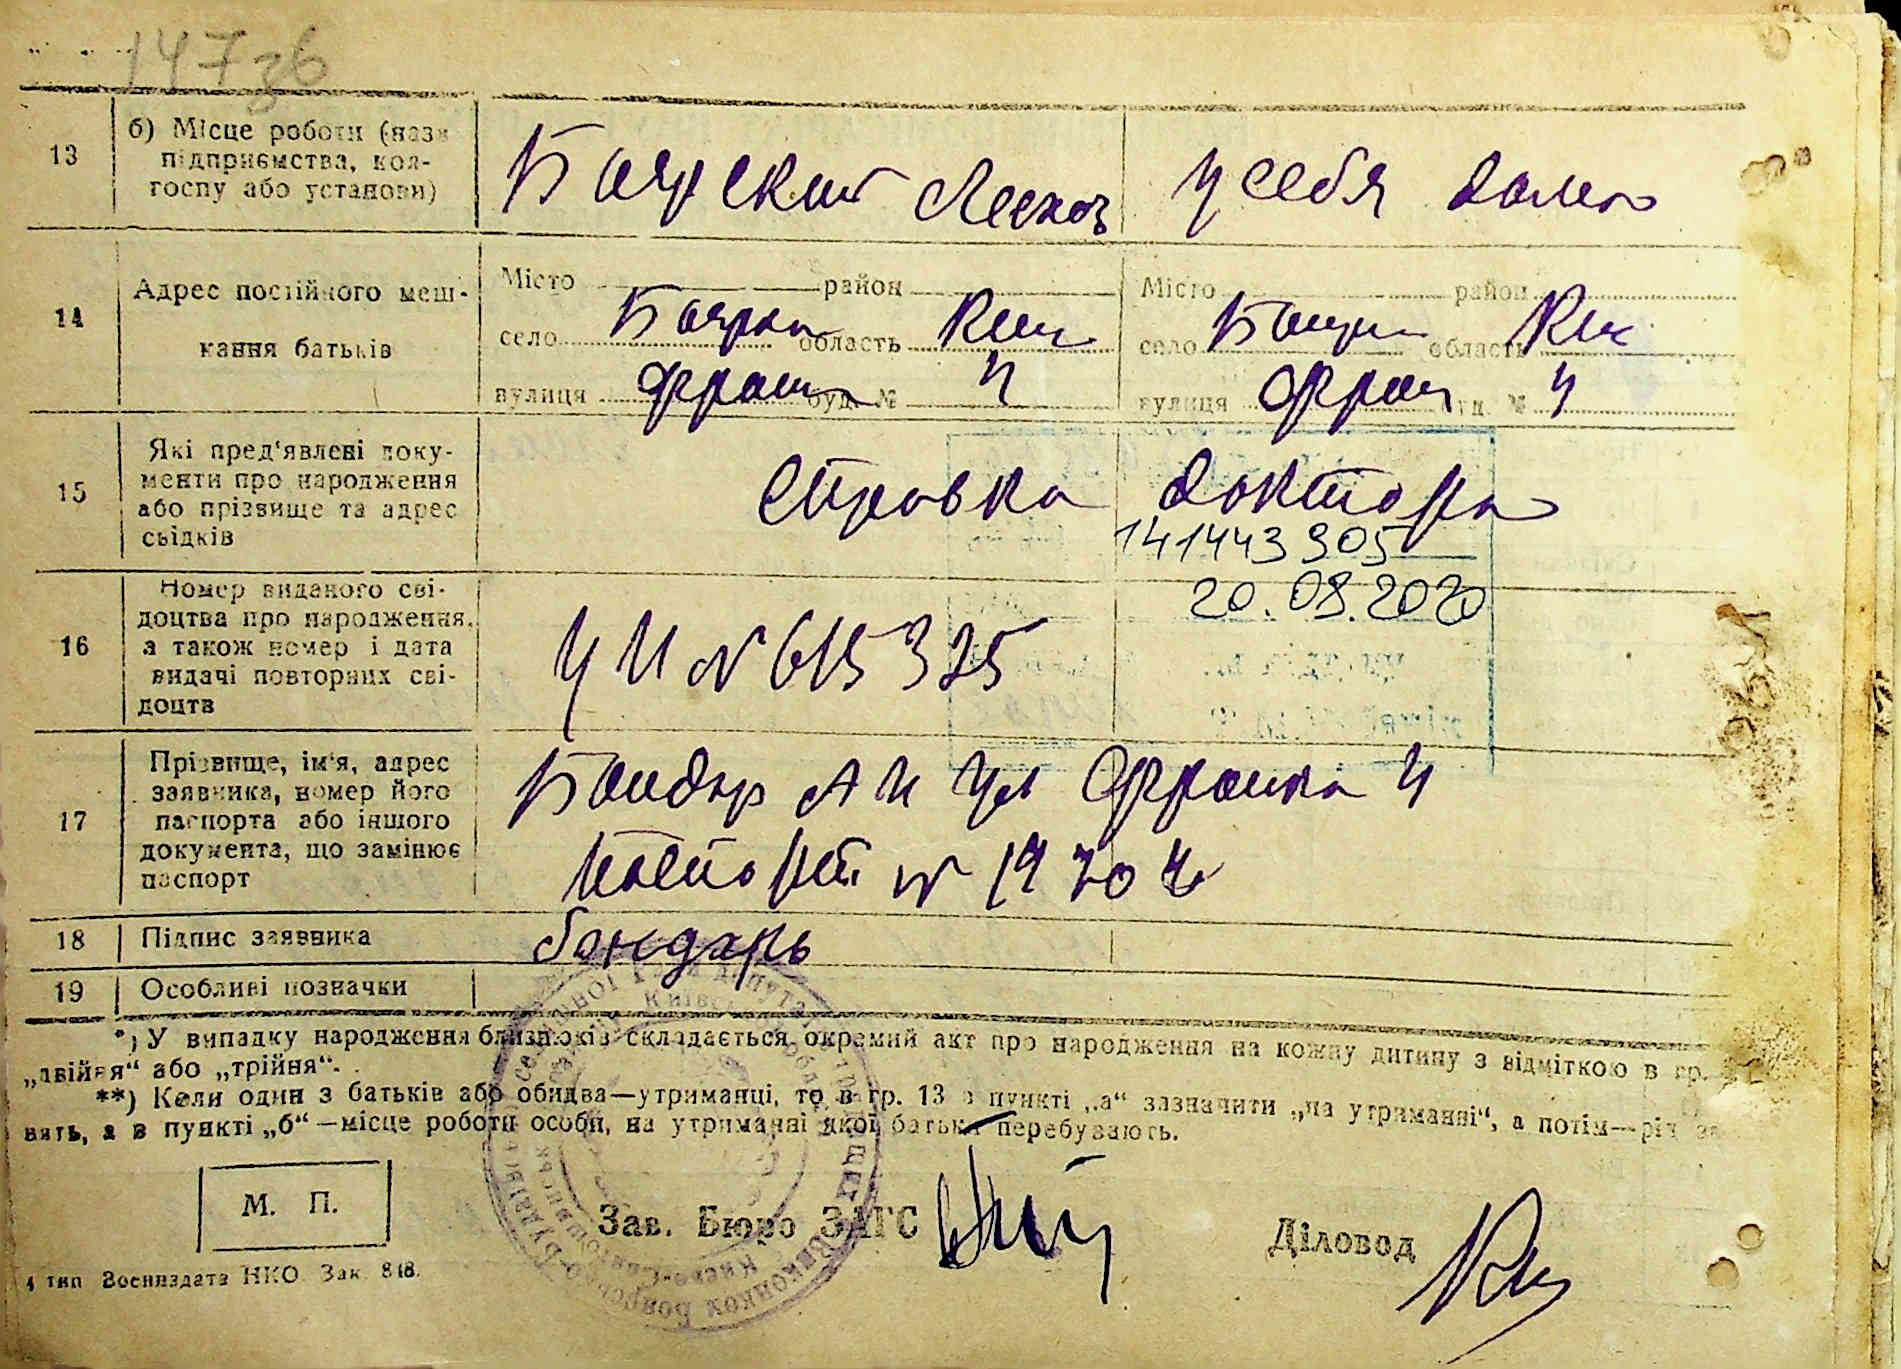 147зб
13
б) Місце роботи (назв
підприємства, кол-
госпу або установи)
Боярский Лесхоз
у себя дома
14
Адрес постійного меш-
кання батьків
Місто район
село Боярка область Ки
вулиця Фран буд. № 4
Місто район
село область Ки
вулиця Фран буд. № 4
15
Які пред'явлені доку-
менти про народження
або прізвище та адрес
свідків
Справка доктора
141443905
20.08.2020
16
Номер виданого сві-
доцтва про народження,
а також номер і дата
видачі повторних сві-
доцтв
№ 615325
17
Прізвище, ім'я, адрес
заявника, номер його
паспорта або іншого
документа, що замінює
паспорт
Бондар А И ул Франка 4
паспорт №
18
Підпис заявника
бондарь
19
Особливі позначки
*) У випадку народження близнюків складається окремий акт про народження на кожну дитину з відміткою в гр.
„двійня“ або „трійня“.
**) Коли один з батьків або обидва—утриманці, то в гр. 13 в пункті „а“ зазначити „на утриманні“, а потім—рід за
нять, а в пункті „б“—місце роботи особи, на утриманні якої батьки перебувають.
М. П.
Зав. Бюро ЗАГС
Діловод
4 тип Воениздата НКО Зак. 848.